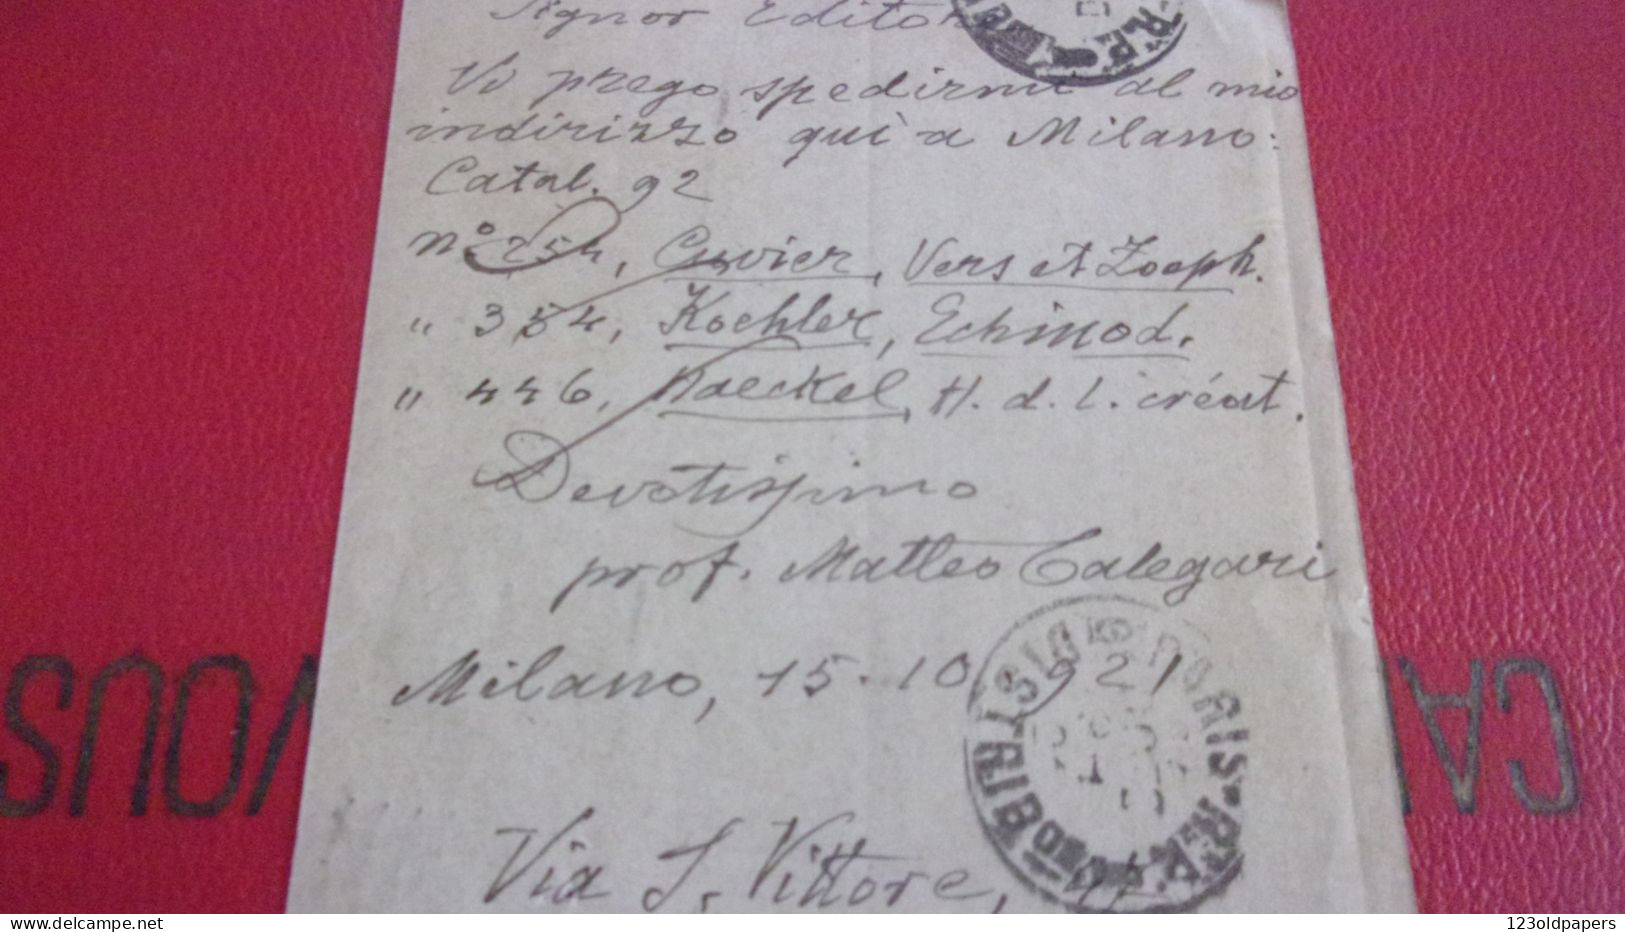 Signor Editore
Vi prego spedirmi al mio
indirizzo quì a Milano:
Catal. 92
n° 254, Cuvier, Vers et Zooph.
" 354, Koehler, Echinod.
" 446, Haeckel, H. d. l. créat.
Devotissimo
prof. Matteo Calegari
Milano, 15.10.921
Via S. Vittore,
PARIS
DISTRIBION
VOUS
CA
123oldpapers